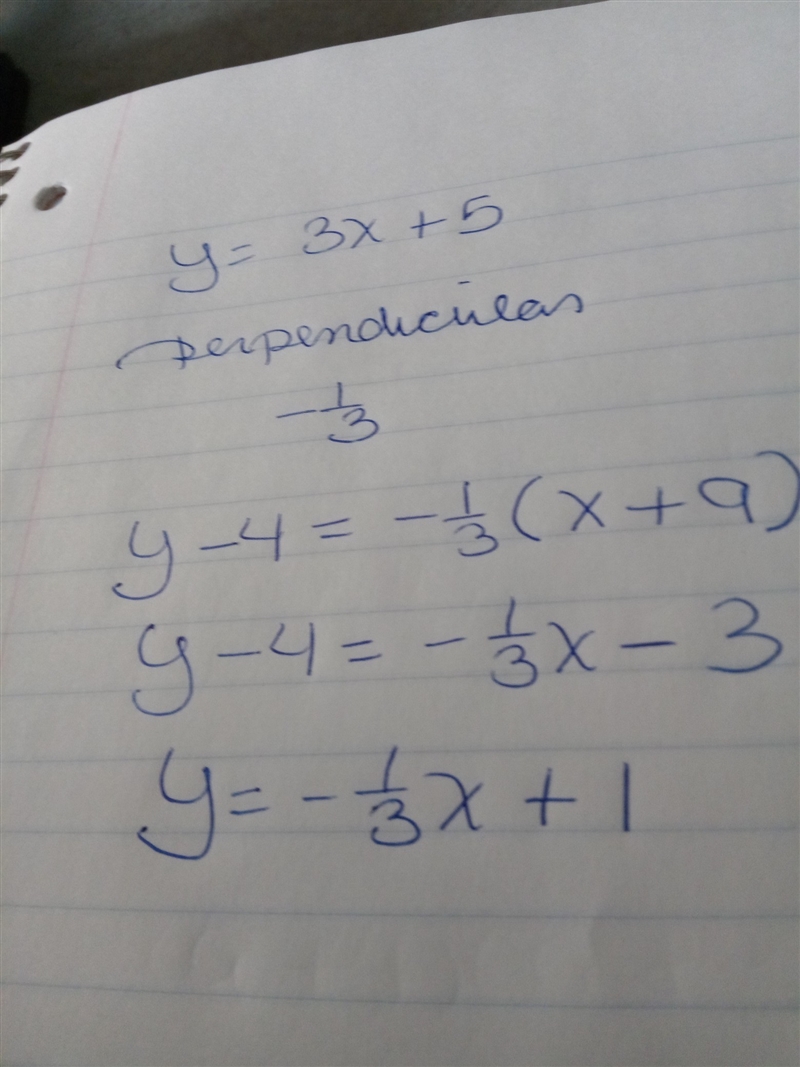 y = 3x + 5
Perpendicular
-1/3
y - 4 = -1/3 (x + 9)
y - 4 = -1/3 x - 3
y = -1/3 x + 1